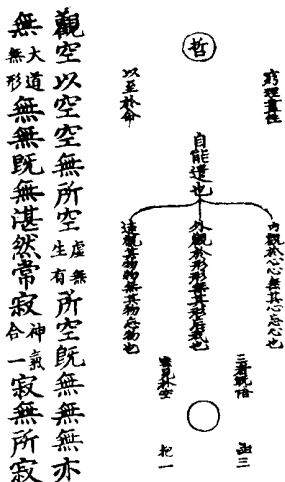 窮理盡性
哲
以至於命
自能遣也
內觀於心心無其心忘心也
外觀於形形無其形忘我也
遠觀其物物無其物忘物也
三者既悟
函三
抱一
觀空以空空無所空虛無生有所空既無無無亦
無大道無形無無既無湛然常寂神氣合一寂無所寂